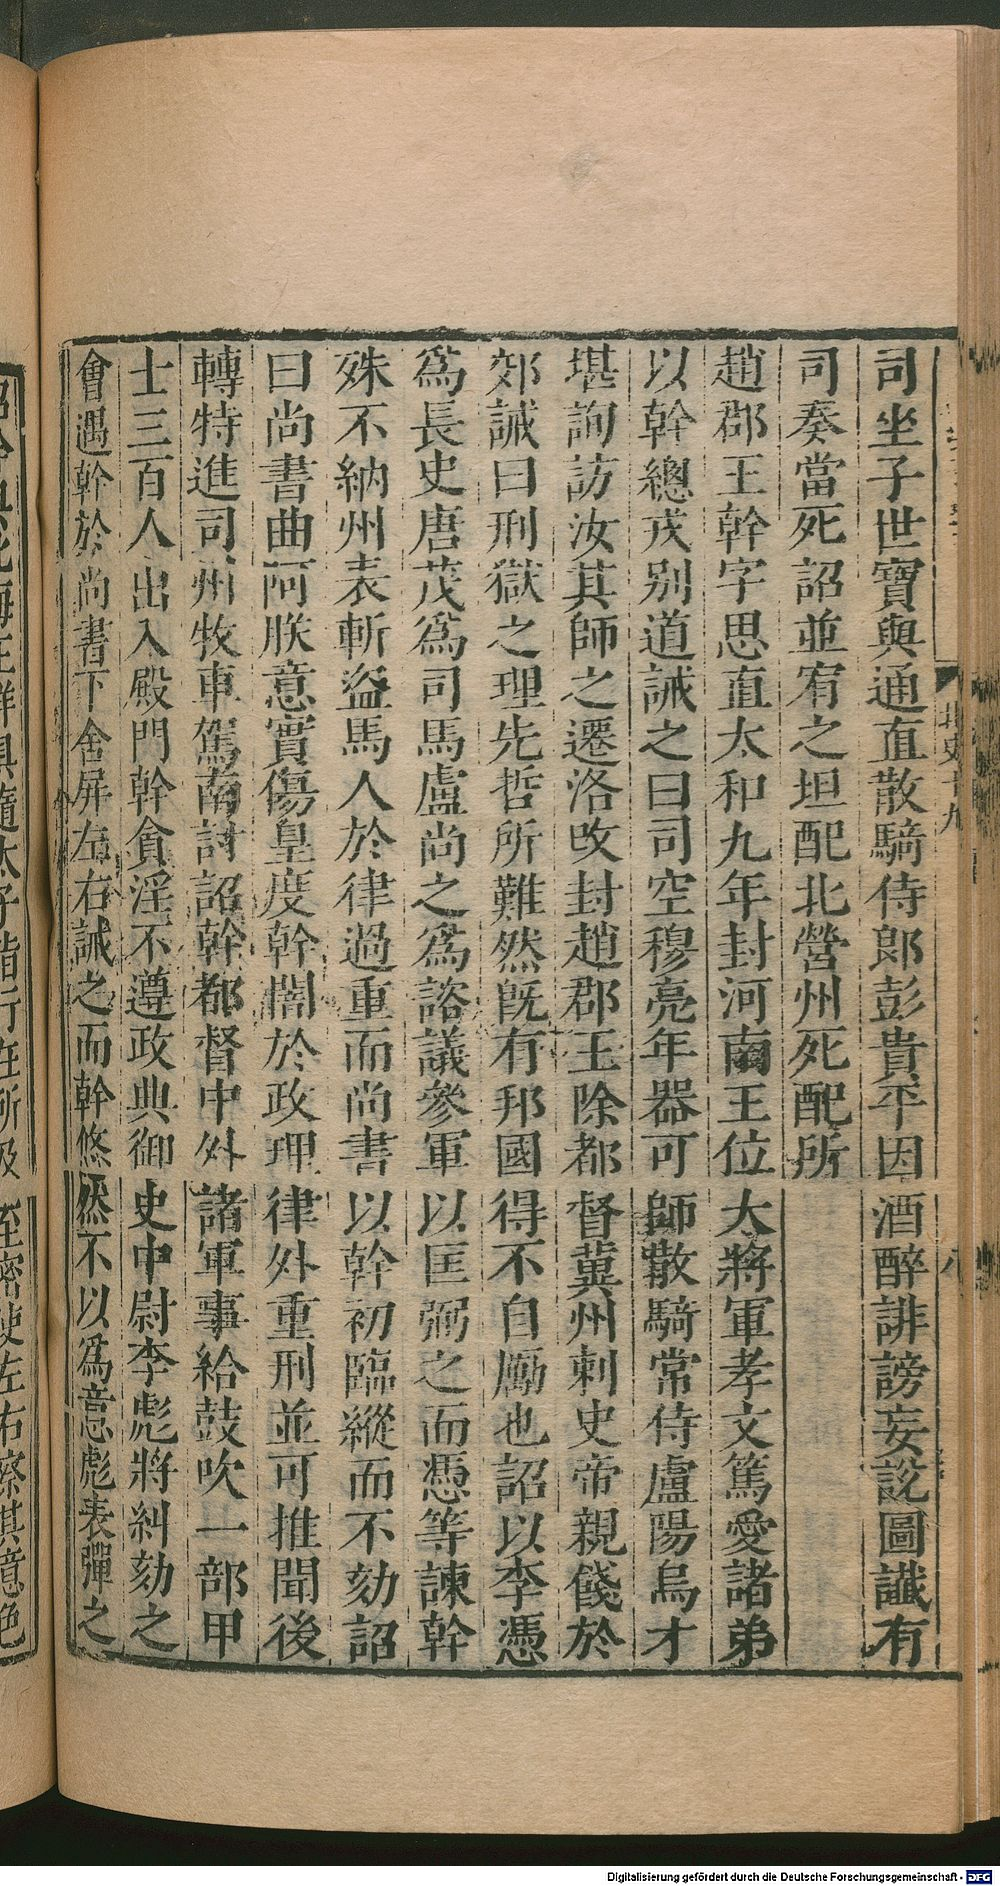 司坐子世寶與通直散騎侍郎彭貴平因酒醉誹謗妄說圖讖有
司奏當死詔並宥之坦配北營州死配所
趙郡王幹字思直太和九年封河南王位大將軍孝文篤愛諸弟
以幹總戎别道誡之曰司空穆亮年器可師散騎常侍盧陽烏才
堪詢訪汝其師之遷洛改封趙郡王除都督冀州刺史帝親餞於
郊誡曰刑獄之理先哲所難然旣有邦國得不自勵也詔以李憑
爲長史唐茂爲司馬盧尚之爲諮議參軍以匡弼之而憑等諫幹
殊不納州表斬盜馬人於律過重而尚書以幹初臨縱而不劾詔
曰尚書曲阿朕意實傷皇度幹闇於政理律外重刑並可推聞後
轉特進司州牧車駕南討詔幹都督中外諸軍事給鼓吹一部甲
士三百人出入殿門幹貪淫不遵政典御史中尉李彪將糾劾之
會遇幹於尚書下舍屏左右誡之而幹悠然不以爲意彪表彈之
北史十九
八
至密使左右察其意色
Digitalisierung gefördert durch die Deutsche Forschungsgemeinschaft - DFG